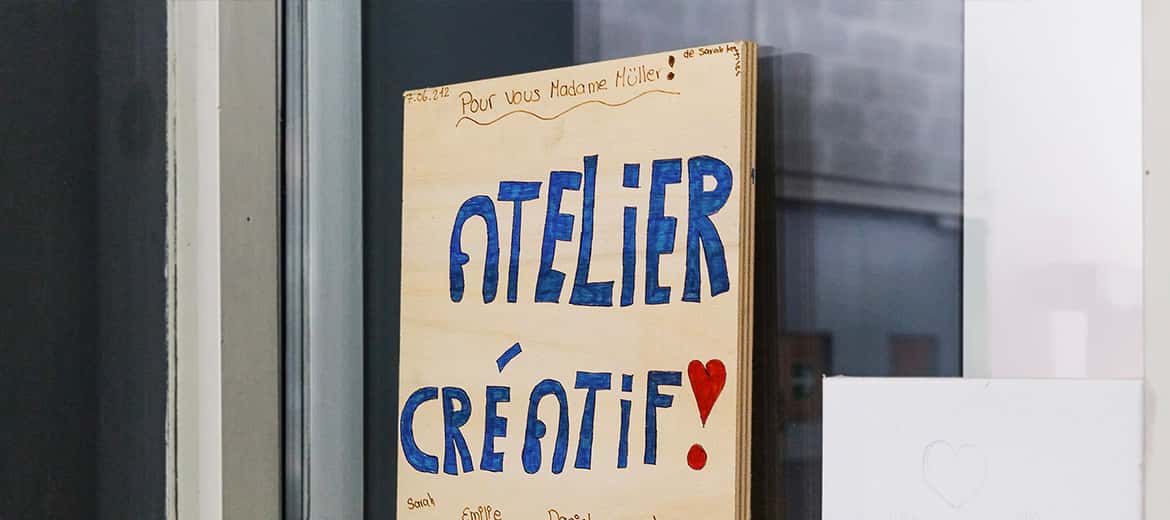 7.06.212
Pour vous Madame Müller!
de Sarah
ATELIER
CRÉATIF!
Sarah
Emilie